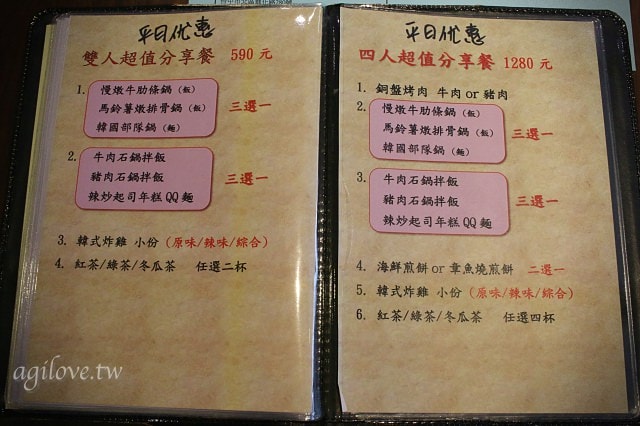 平日优惠
雙人超值分享餐 590 元
1. 慢燉牛肋條鍋（飯）
馬鈴薯燉排骨鍋（飯） 三選一
韓國部隊鍋（麵）
2. 牛肉石鍋拌飯
豬肉石鍋拌飯 三選一
辣炒起司年糕QQ麵
3. 韓式炸雞 小份（原味/辣味/綜合）
4. 紅茶/綠茶/冬瓜茶 任選二杯
agilove.tw
平日优惠
四人超值分享餐 1280 元
1. 銅盤烤肉 牛肉 or 豬肉
2. 慢燉牛肋條鍋（飯）
馬鈴薯燉排骨鍋（飯） 三選一
韓國部隊鍋（麵）
3. 牛肉石鍋拌飯
豬肉石鍋拌飯 三選一
辣炒起司年糕QQ麵
4. 海鮮煎餅 or 章魚燒煎餅 二選一
5. 韓式炸雞 小份（原味/辣味/綜合）
6. 紅茶/綠茶/冬瓜茶 任選四杯